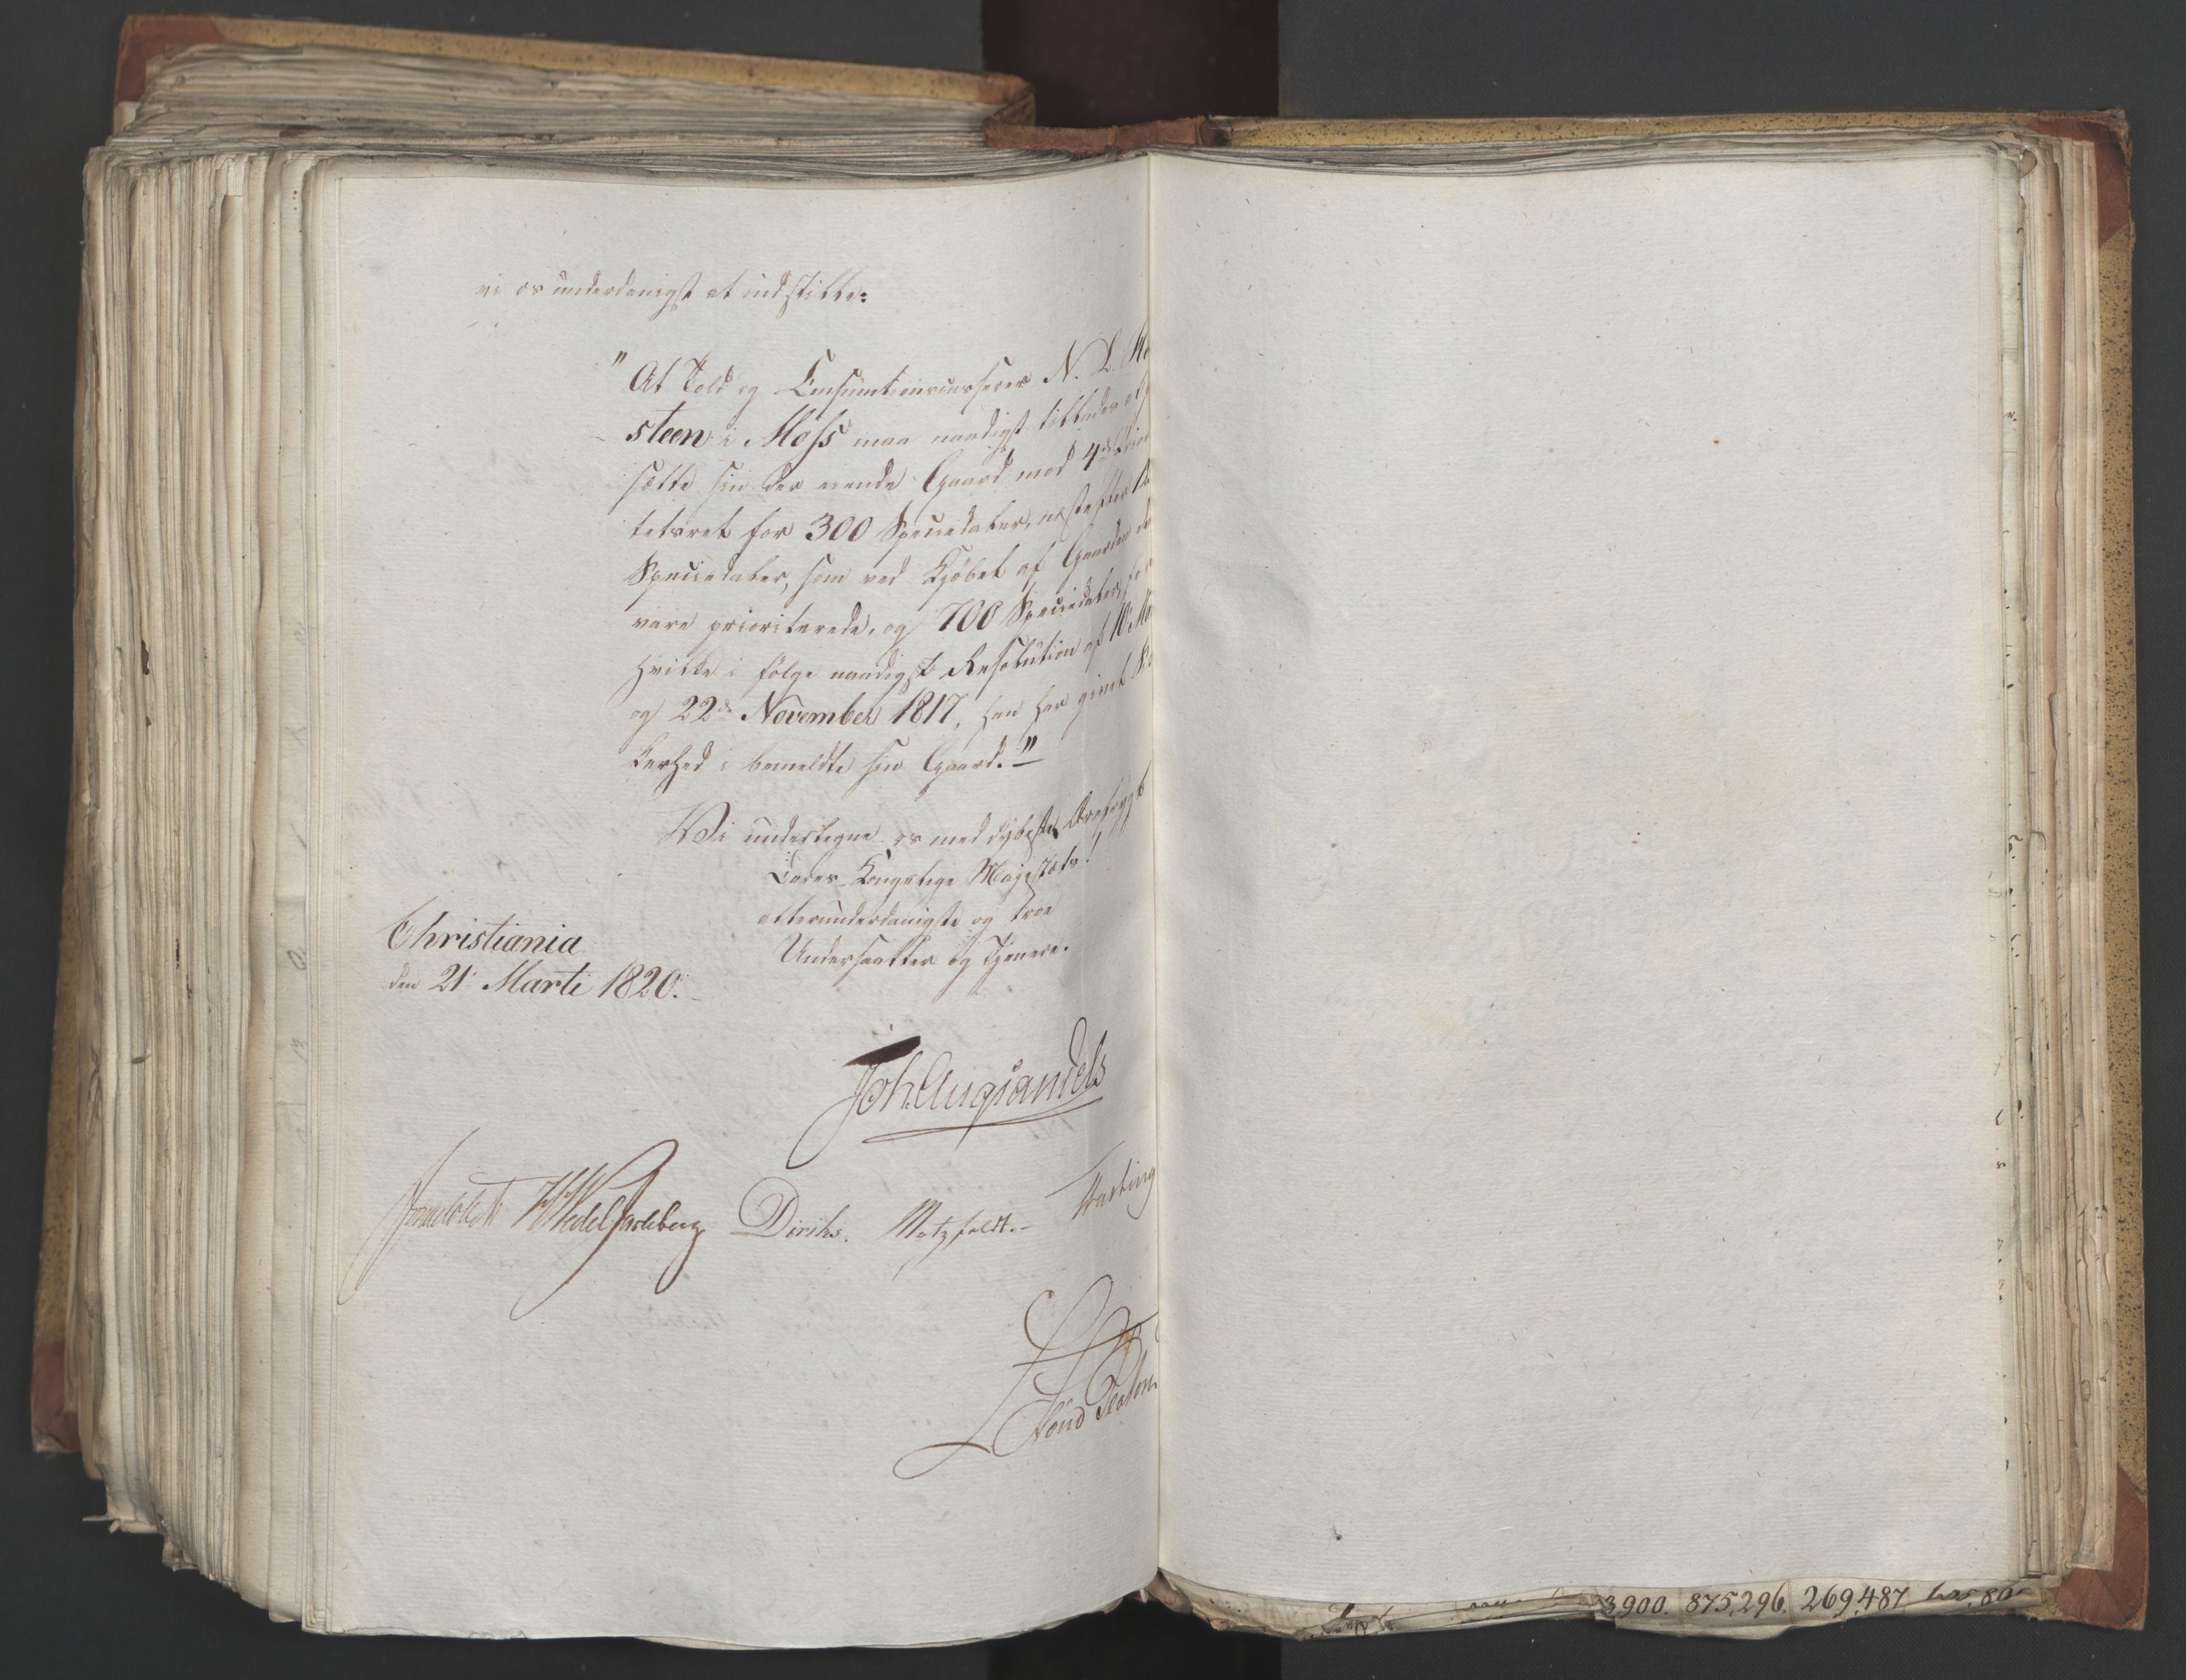 vi os underdanigst at indstille:
"At Told og Consumtionscasserer N. L.
steen i Moss maa naadigst tillades at
sætte sin der eiende Gaard med 4de Prior
tetsret for 300 Speciedaler, næstefter
Speciedaler, som ved Kjøbet af Gaarden
vare prioriterede, og 700 Speciedaler, for
hvilke i følge naadigst Resolution af
og 22de November 1817, han har givet
kerhed i bemeldte sin Gaard."
Vi undertegne os med dybeste Ærefrygt
Deres Kongelige Majestæts!
allerunderdanigste og troe
Undersaatter og Tjenere.
Christiania
den 21 Marti 1820.
Joh Aug Sandels
HWedel Jarlsberg Diriks. Motzfeldt. Fasting
3,900. 875,296. 269,487